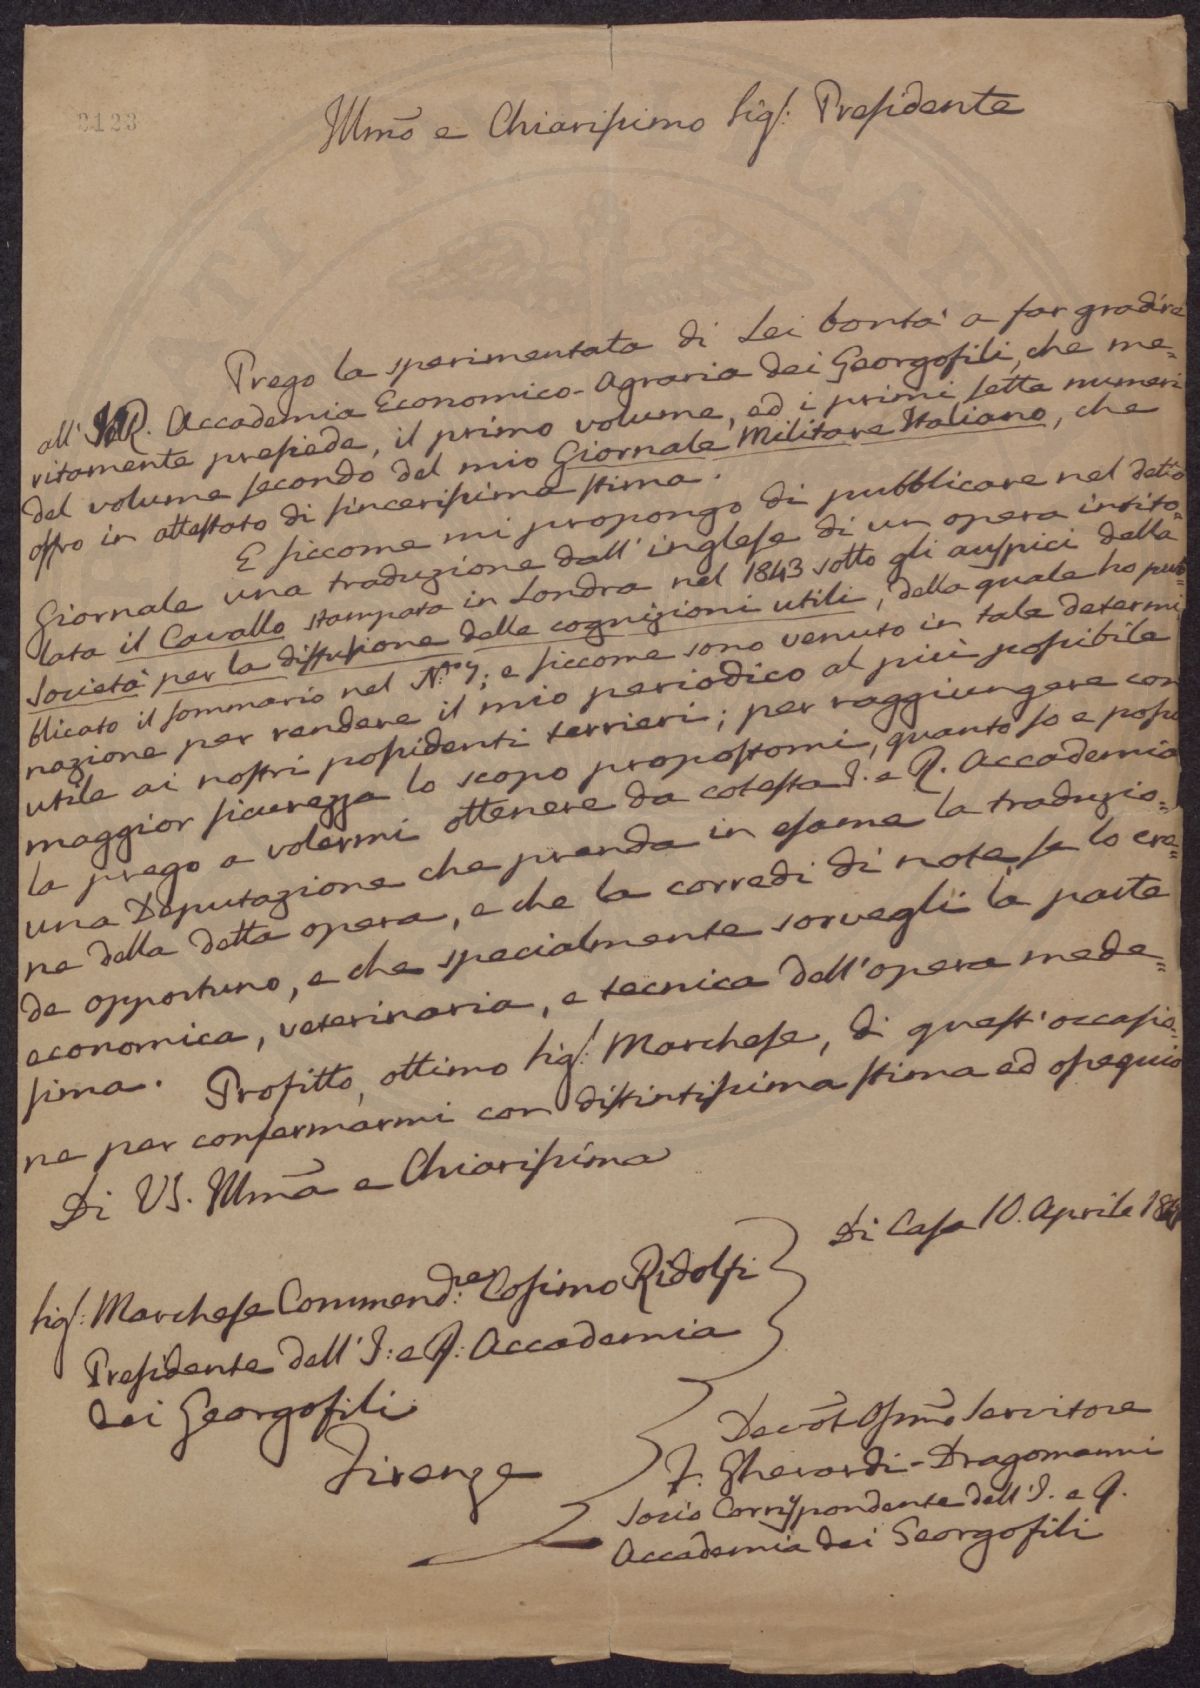 2123
Illmo e Chiarissimo Sig: Presidente
Prego la sperimentata di Lei bontà a far gradire
all' I. R. Accademia Economico-Agraria dei Georgofili, che me=
ritamente presiede, il primo volume, ed i primi sette numeri
del volume secondo del mio Giornale Militare Italiano, che
offro in attestato di sincerissima stima.
E siccome mi propongo di pubblicare nel detto
Giornale una traduzione dall'inglese di un opera intito=
lata il Cavallo stampata in Londra nel 1843 sotto gli auspici della
Società per la diffusione delle cognizioni utili, della quale ho pub=
blicato il sommario nel No. 7; e siccome sono venuto in tale determi
nazione per rendere il mio periodico al più possibile
utile ai nostri possidenti terrieri; per raggiungere con
maggior sicurezza lo scopo propostomi, quanto so e posso
la prego a volermi ottenere da cotesta I. e R. Accademia
una Deputazione che prenda in esame la traduzio=
ne della detta opera, e che la corredi di note, se lo cre=
de opportuno, e che specialmente sorvegli la parte
economica, veterinaria, e tecnica dell'opera mede=
sima. Profitto, ottimo Sig: Marchese, di quest'occasio=
ne per confermarmi con distintissima stima ed ossequio
Di VS. Illma e Chiarissima
Di Casa 10. Aprile
Sig: Marchese Commendre Cosimo Ridolfi
Presidente dell'I: e R: Accademia
dei Georgofili
Firenze
Devot Osmo Servitore
F. Gherardi-Dragomanni
Socio Corrispondente dell'I. e R.
Accademia dei Georgofili